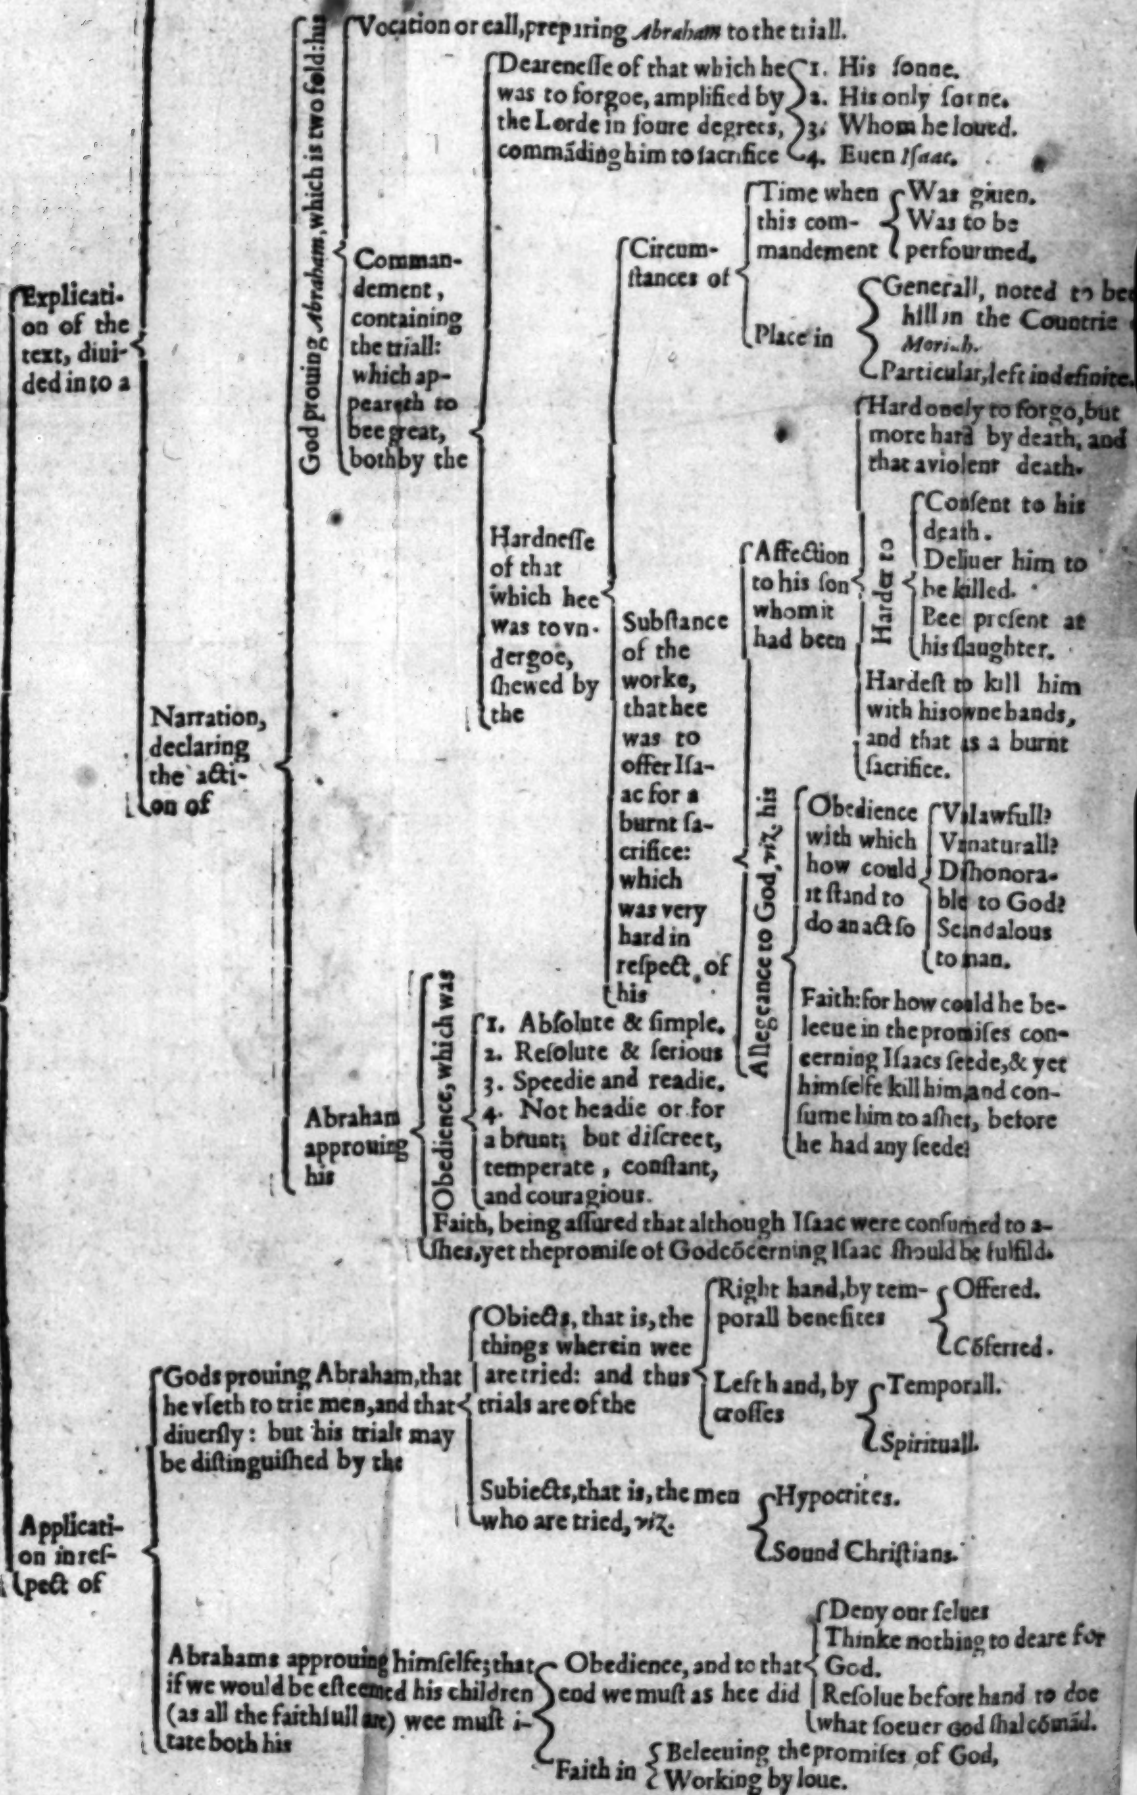 Explicati-
on of the
text, diui-
ded into a
Narration,
declaring
the acti-
on of
God prouing Abraham, which is two fold: his
Vocation or call, preparing Abraham to the triall.
Comman-
dement,
containing
the triall:
which ap-
peareth to
bee great,
both by the
Dearenesse of that which he
was to forgoe, amplified by
the Lorde in foure degrees,
commāding him to sacrifice
1. His sonne.
2. His only sonne.
3. Whom he loued.
4. Euen Isaac.
Hardnesse
of that
which hee
was to vn-
dergoe,
shewed by
the
Circum-
stances of
Time when
this com-
mandement
Was giuen.
Was to be
perfourmed.
Place in
Generall, noted to bee
hill in the Countrie
Moriah.
Particular, left indefinite.
Substance
of the
worke,
that hee
was to
offer Isa-
ac for a
burnt sa-
crifice:
which
was very
hard in
respect of
his
Affection
to his son
whom it
had been
Hard onely to forgo, but
more hard by death, and
that a violent death.
Harder to
Consent to his
death.
Deliuer him to
be killed.
Bee present at
his slaughter.
Hardest to kill him
with his owne hands,
and that as a burnt
sacrifice.
Allegeance to God, viz, his
Obedience
with which
how could
it stand to
do an act so
Vnlawfull?
Vnnaturall?
Dishonora-
ble to God?
Scandalous
to man.
Faith: for how could he be-
leeue in the promises con-
cerning Isaacs seede, & yet
himselfe kill him, and con-
sume him to ashes, before
he had any seede?
Abraham
approuing
his
Obedience, which was
1. Absolute & simple.
2. Resolute & serious
3. Speedie and readie.
4. Not headie or for
a brunt; but discreet,
temperate, constant,
and couragious.
Faith, being assured that although Isaac were consumed to a-
shes, yet the promise of God cōcerning Isaac should be fulfild.
Applicati-
on in res-
pect of
Gods prouing Abraham, that
he vseth to trie men, and that
diuersly: but his trials may
be distinguished by the
Obiects, that is, the
things wherein wee
are tried: and thus
trials are of the
Right hand, by tem-
porall benefites
Offered.
Cōferred.
Left hand, by
crosses
Temporall.
Spirituall.
Subiects, that is, the men
who are tried, viz.
Hypocrites.
Sound Christians.
Abrahams approuing himselfe; that
if we would be esteemed his children
(as all the faithfull are) wee must i-
tate both his
Obedience, and to that
end we must as hee did
Deny our selues
Thinke nothing to deare for
God.
Resolue before hand to doe
what soeuer God shal cōmād.
Faith in
Beleeuing the promises of God,
Working by loue.